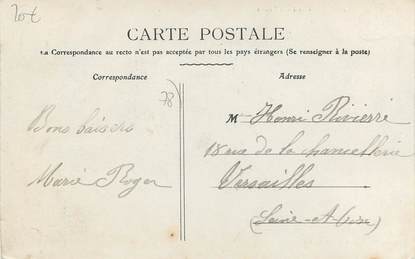 20€
CARTE POSTALE
La Correspondance au recto n'est pas acceptée par tous les pays étrangers (Se renseigner à la poste)
Correspondance
Adresse
78
Bons baisers
Marie Roger
M Henri Rivierre
18 rue de la chancellerie
Versailles
(Seine-et-Oise)